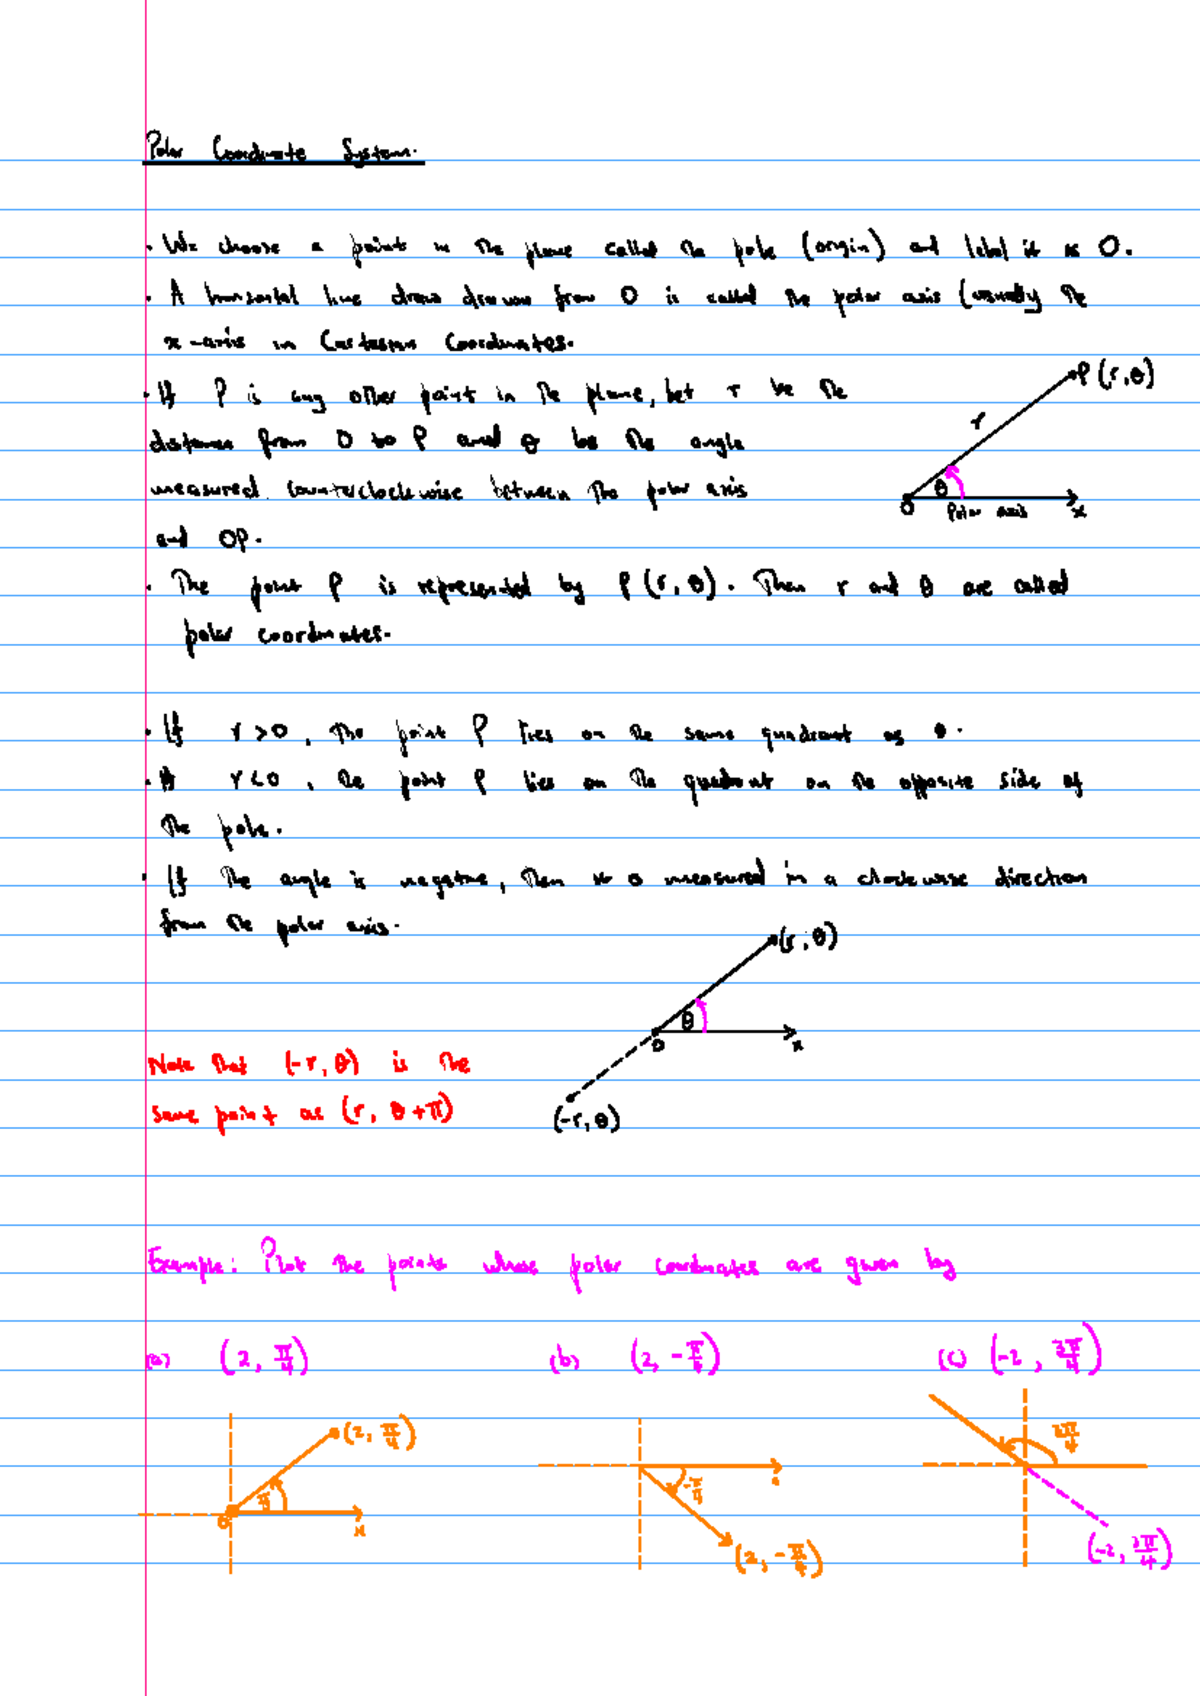 Polar Coordinate System.
· We choose a point in the plane called the pole (origin) and label it as O.
· A horizontal line drawn from O is called the polar axis (usually the
x-axis in Cartesian Coordinates.
· If P is any other point in the plane, let r be the
distance from O to P and θ be the angle
measured counterclockwise between the polar axis
and OP.
P(r,θ)
r
θ
O
Polar axis
x
· The point P is represented by P(r,θ). Then r and θ are called
polar coordinates.
· If r>0, the point P lies on the same quadrant as θ.
· If r<0, the point P lies on the quadrant on the opposite side of
the pole.
· If the angle is negative, then measured in a clockwise direction
from the polar axis.
(r,θ)
θ
O
x
(-r,θ)
Note that (-r,θ) is the
same point as (r, θ+π)
Example: Plot the points whose polar coordinates are given by
(a) (2, π/4) (b) (2, -π/4) (c) (-2, 3π/4)
(2, π/4)
π/4
O
x
-π/4
(2, -π/4)
3π/4
(-2, 3π/4)